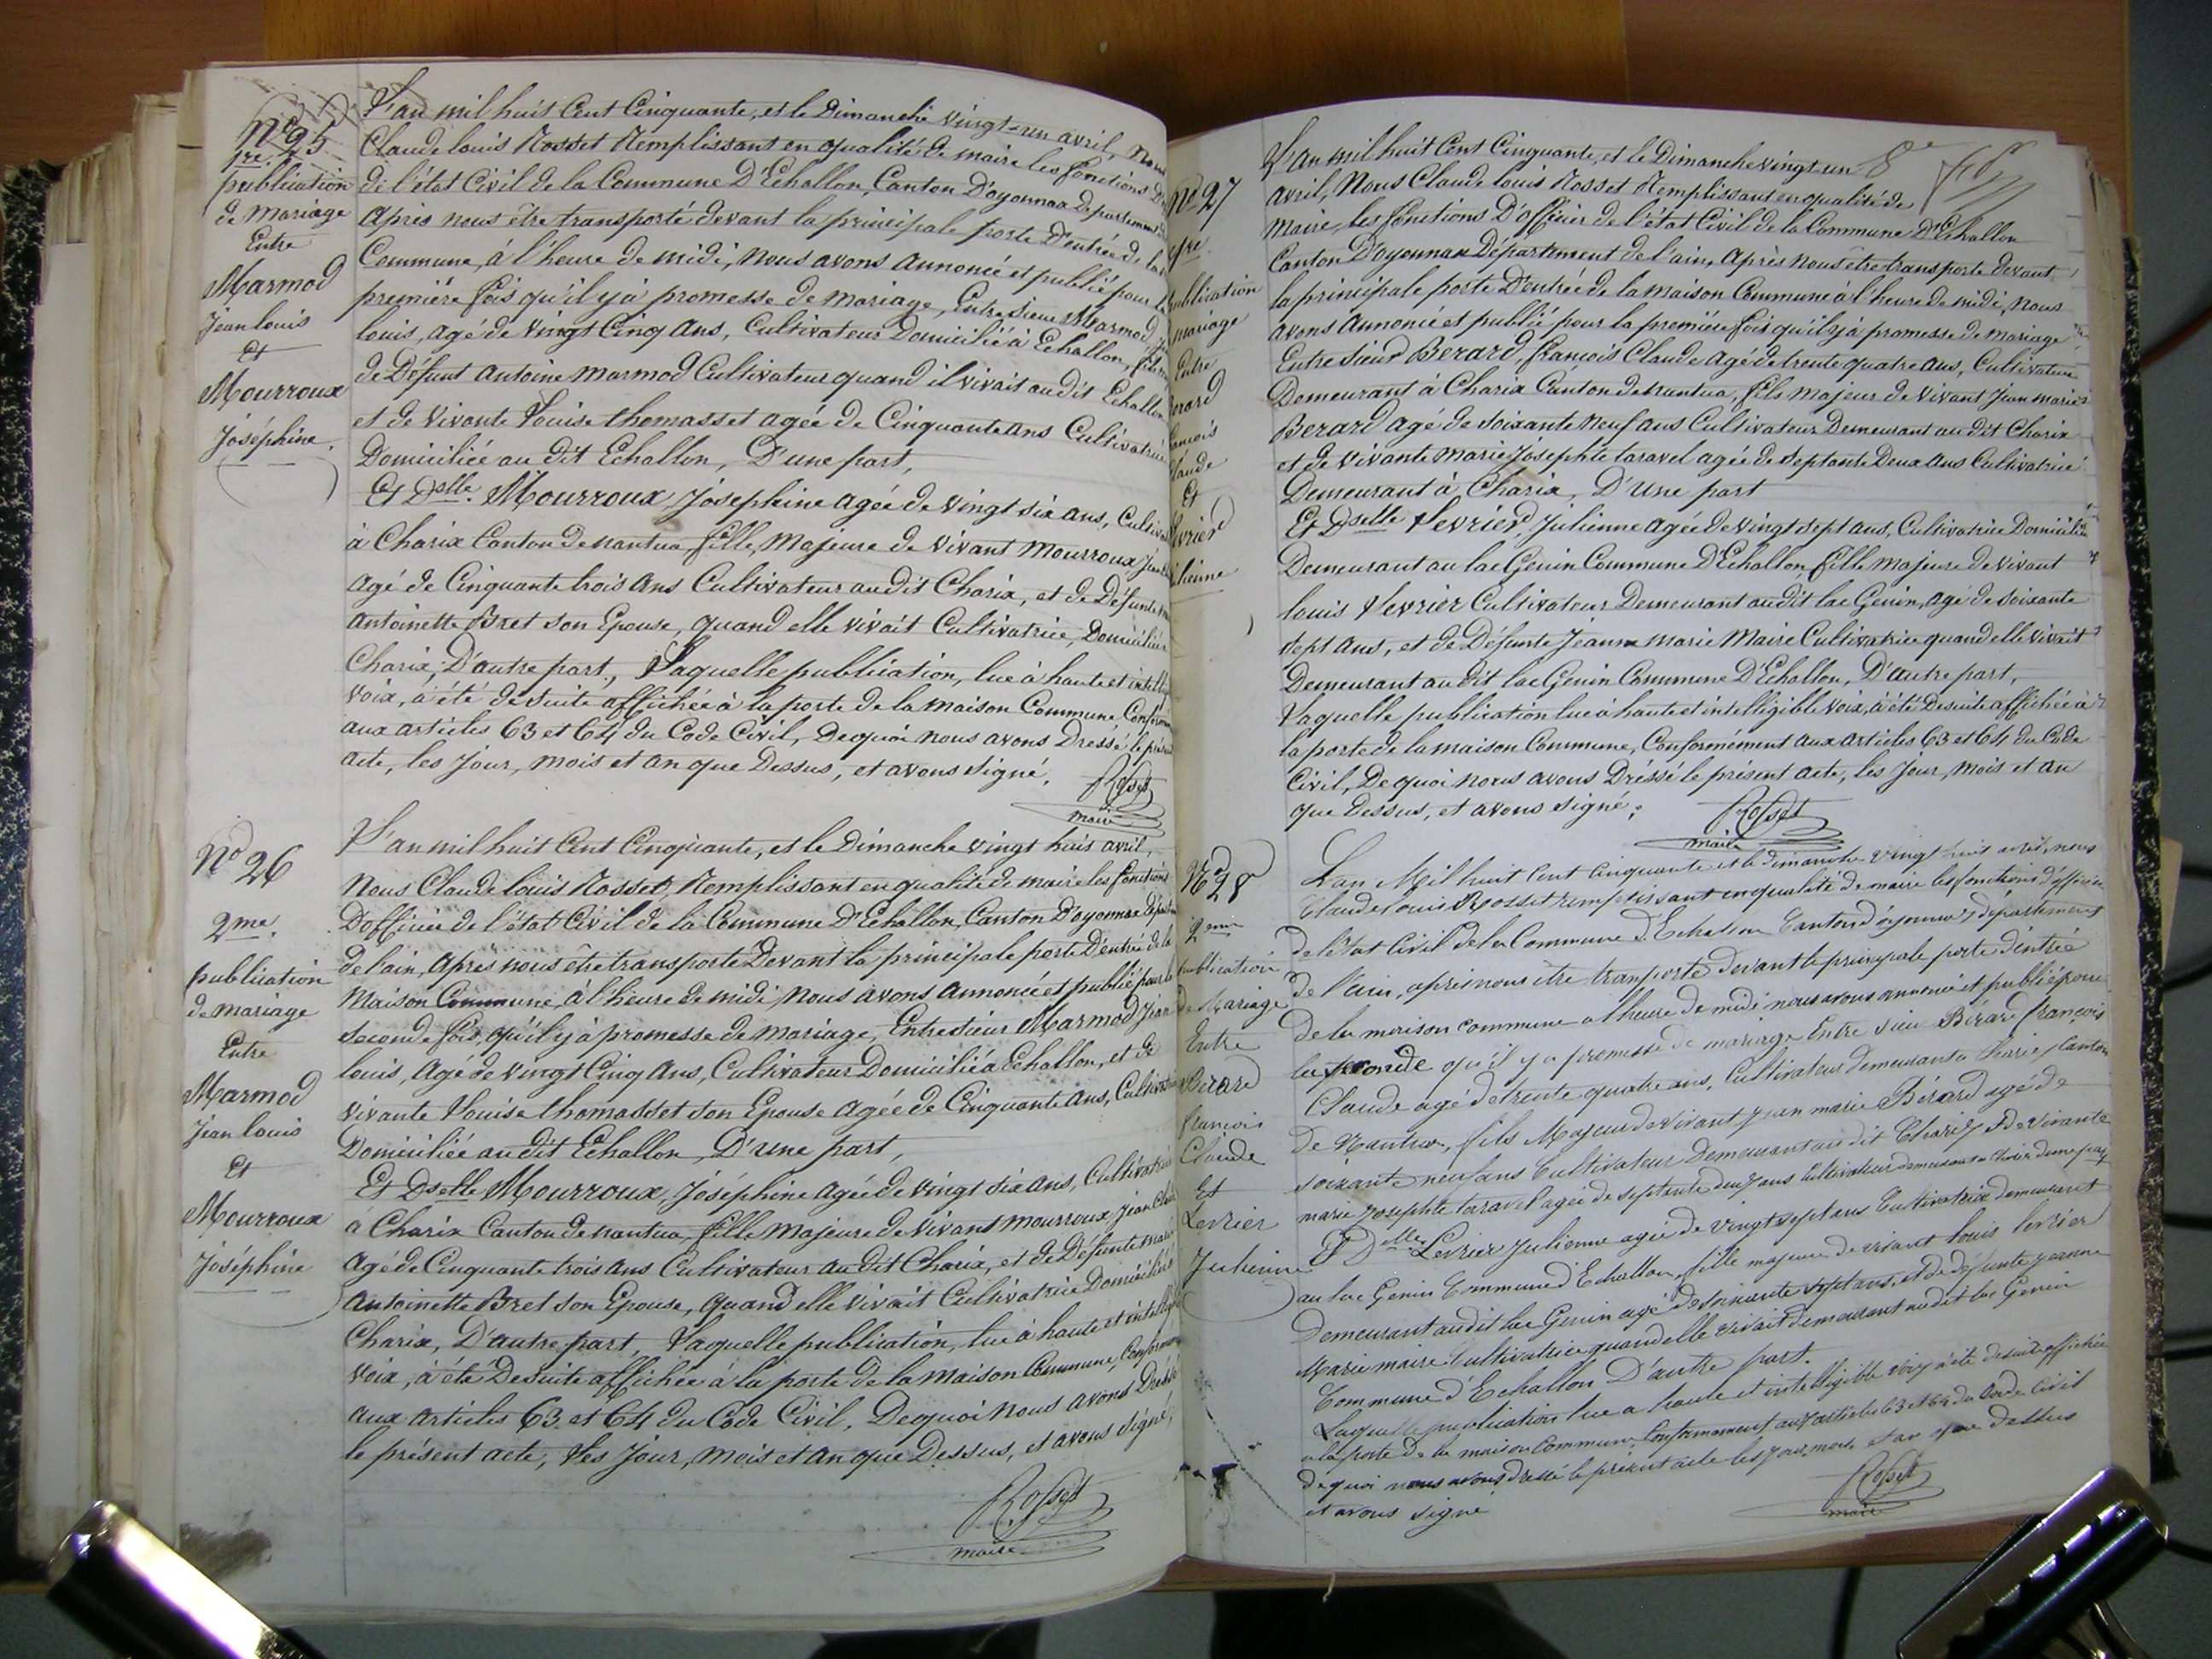 No 25
1re
publication
de Mariage
Entre
Marmod
Jean louis
Et
Mourroux
Joséphine.
L'an mil huit Cent Cinquante, et le Dimanche vingt-un avril, Nous
Claude louis Rosset Remplissant en qualité de maire les fonctions
de l'état Civil de la Commune D'Echallon, Canton D'oyonnax Département
Après nous être transporté devant la principale porte D'entrée de la
Commune, à l'heure de midi, Nous avons Annoncé et publié pour la
première fois qu'il y à promesse de Mariage, Entre Sieur Marmod
louis, agé de Vingt Cinq Ans, Cultivateur Domicilié à Echallon, fils
de Défunt Antoine Marmod Cultivateur quand il vivait au dit Echallon
et de Vivante Louise thomasset agée de Cinquante ans Cultivatrice
Domiciliée au dit Echallon, D'une part,
Et Dselle Mourroux, Joséphine agée de Vingt six ans,
à Charix Canton de nantua fille Majeure de Vivant Mourroux Jean
Agé de Cinquante trois Ans Cultivateur au dit Charix, et de Défunte
Antoinette Bret son Epouse, quand elle vivait Cultivatrice, Domiciliée
Charix, D'autre part, Laquelle publication, lue à haute et
voix, à été de suite affichée à la porte de la Maison Commune,
aux articles 63 et 64 du Code Civil, De quoi nous avons Dressé le
Acte, les Jour, Mois et an que Dessus, et avons signé.
Rosset
maire
No 26
2me
publication
de mariage
Entre
Marmod
Jean louis
Et
Mourroux
Joséphine
L'an mil huit Cent Cinquante, et le Dimanche vingt huit avril,
Nous Claude louis Rosset, Remplissant en qualité de maire les fonctions
D'officier de l'état Civil de la Commune D'Echallon, Canton D'oyonnax
de l'ain, Après nous être transporté Devant la principale porte D'entrée de la
Maison Commune, à l'heure de midi, Nous avons Annoncé et publié pour la
seconde fois, qu'il y à promesse de Mariage, Entre Sieur Marmod Jean
louis, Agé de Vingt Cinq Ans, Cultivateur Domicilié à Echallon, et de
vivante Louise thomasset son Epouse Agée de Cinquante Ans,
Domiciliée au dit Echallon, D'une part,
Et Dselle Mourroux, Joséphine Agée de Vingt six ans, Cultivatrice
à Charix Canton de nantua, fille Majeure de Vivant mourroux Jean
Agé de Cinquante trois Ans Cultivateur au dit Charix, et de Défunte
Antoinette Bret son Epouse, quand elle vivait Cultivatrice
Charix, D'autre part, Laquelle publication, lue à haute et
Voix, à été De suite affichée à la porte de la Maison Commune,
aux Articles 63 et 64 du Code Civil. De quoi Nous avons Dressé
le présent acte, les Jour, Mois et an que Dessus, et avons signé,
Rosset
maire
No 27
1re
publication
mariage
Entre
L'an mil huit Cent Cinquante, et le Dimanche vingt un
Avril, Nous Claude louis Rosset Remplissant en qualité de
Maire, les fonctions D'officier de l'état Civil de la Commune D'Echallon
Canton D'oyonnax Département de l'ain, Après nous être transporté devant
la principale porte D'entrée de la Maison Commune à l'heure de midi, Nous
Avons Annoncé et publié pour la première fois qu'il y à promesse de Mariage
Entre Sieur Berard, françois Claude Agé de trente quatre ans, Cultivateur
Demeurant à Charix Canton de nantua, fils Majeur de Vivant Jean marie
Berard agé de soixante Neuf ans Cultivateur Demeurant au dit Charix
et de Vivante Marie Josephte taravel agée de Septante Deux ans Cultivatrice
Demeurant à Charix, D'Une part
Et Dselle Levrier, Julienne agée de Vingt Sept ans, Cultivatrice Domiciliée
Demeurant au lac Genin Commune D'Echallon, fille Majeure de Vivant
louis Levrier Cultivateur Demeurant au dit lac Genin, agé de soixante
sept ans, et de Défunte Jeanne Marie Maire Cultivatrice quand elle vivait
Demeurant au dit lac Genin Commune D'Echallon, D'autre part,
Laquelle publication lue à haute et intelligible voix, à été De suite affichée à
la porte de la maison Commune, Conformément aux Articles 63 et 64 du Code
Civil, De quoi Nous avons Dréssé le présent Acte, les Jour, Mois et an
que Dessus, et avons signé.
Rosset
maire
No 28
2eme
publication
de Mariage
Entre
Bérard
françois
Claude
Et
Levrier
Julienne
L'an Mil huit Cent Cinquante et le dimanche vingt huit avril, nous
Claude louis Rosset remplissant en qualité de maire les fonctions d'officier
de l'état Civil de la Commune d'Echallon Canton d'oyonnax département
de l'ain, après nous être transporté devant la principale porte d'entrée
de la maison commune a l'heure de midi nous avons annoncé et publié pour
la seconde qu'il y a promesse de mariage Entre sieur Bérard françois
Claude agé de trente quatre ans, Cultivateur demeurant a Charix Canton
de Nantua, fils Majeur de vivant jean marie Bérard agé de
soixante neuf ans Cultivateur Demeurant au dit Charix & de vivante
marie Josephte taravel agée de septante deux ans Cultivateur demeurant a Charix d'une part
Et Delle Levrier Julienne agée de vingt sept ans Cultivatrice demeurant
au lac Genin Commune d'Echallon, fille majeure de vivant louis levrier
Demeurant au dit lac Genin agé de soixante sept ans, et de défunte jeanne
Marie maire Cultivatrice quand elle vivait demeurant au dit lac Genin
Commune d'Echallon D'autre part.
Laquelle publication lue a haute et intelligible voix à été de suite affichée
a la porte de la maison Commune Conformement aux articles 63 et 64 du Code Civil
de quoi nous avons dressé le présent acte les jour, mois et an que dessus
et avons signé
Rosset
maire